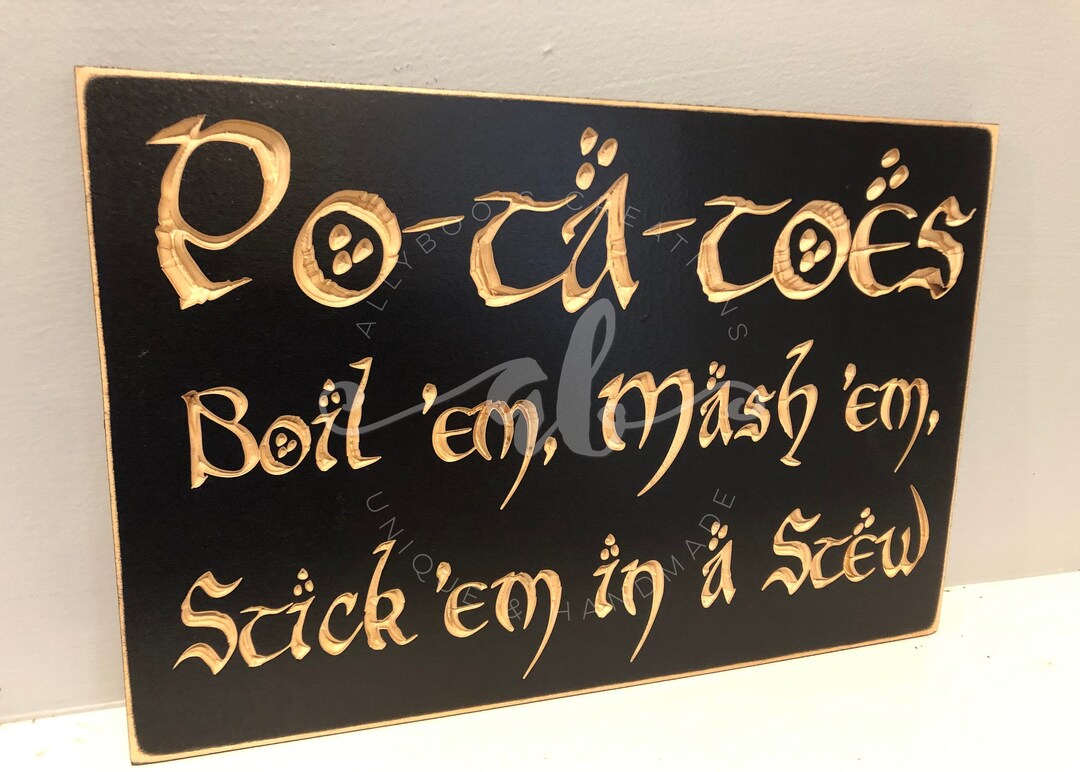 Po-ta-toes
Boil 'em, Mash 'em,
Stick 'em in a Stew
ALLYBOO'S CREATIONS
alb
UNIQUE & HANDMADE